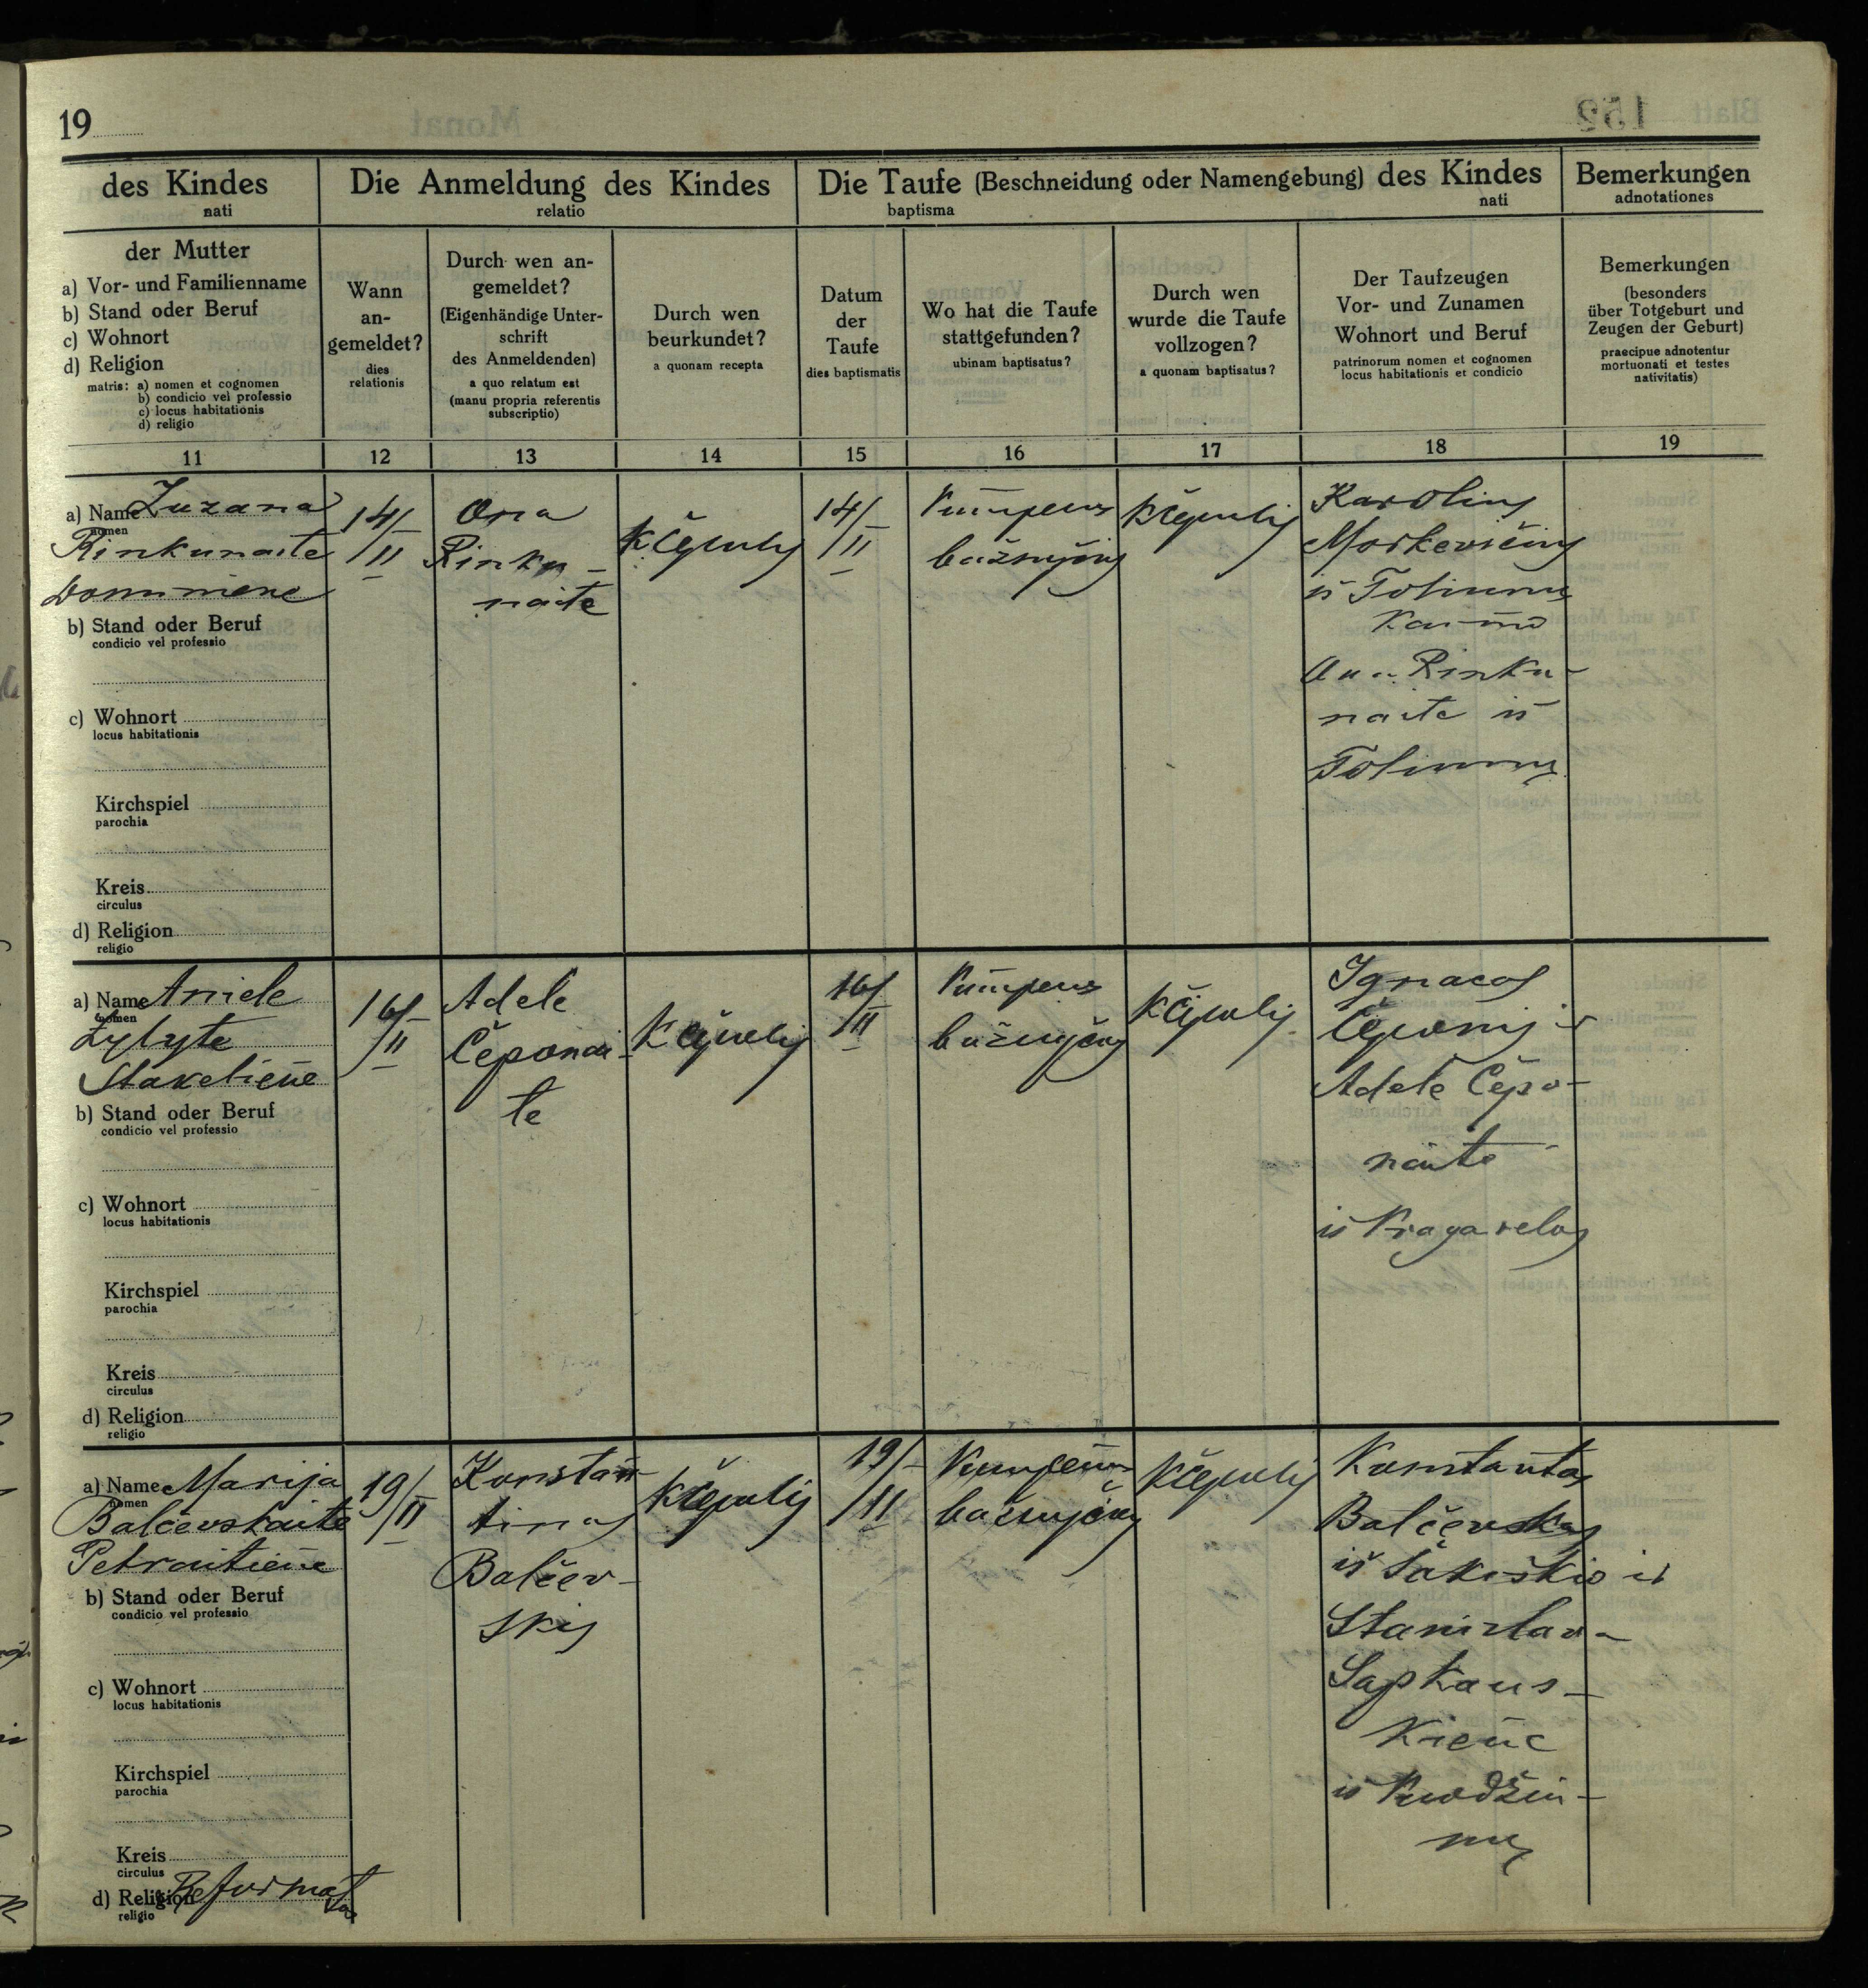 19
des Kindes
nati
Die Anmeldung des Kindes
relatio
Die Taufe (Beschneidung oder Namengebung) des Kindes
baptisma nati
Bemerkungen
adnotationes
der Mutter
a) Vor- und Familienname
b) Stand oder Beruf
c) Wohnort
d) Religion
matris: a) nomen et cognomen
b) condicio vel professio
c) locus habitationis
d) religio
Wann
an-
gemeldet?
dies
relationis
Durch wen an-
gemeldet?
(Eigenhändige Unter-
schrift
des Anmeldenden)
a quo relatum est
(manu propria referentis
subscriptio)
Durch wen
beurkundet?
a quonam recepta
Datum
der
Taufe
dies baptismatis
Wo hat die Taufe
stattgefunden?
ubinam baptisatus?
Durch wen
wurde die Taufe
vollzogen?
a quonam baptisatus?
Der Taufzeugen
Vor- und Zunamen
Wohnort und Beruf
patrinorum nomen et cognomen
locus habitationis et condicio
Bemerkungen
(besonders
über Totgeburt und
Zeugen der Geburt)
praecipue adnotentur
mortuonati et testes
nativitatis)
11 12 13 14 15 16 17 18 19
a) Name Zuzana
nomen
Rinkunaite
b) Stand oder Beruf
condicio vel professio
c) Wohnort
locus habitationis
Kirchspiel
parochia
Kreis
circulus
d) Religion
religio
14/II
Ona
Rinku-
naite
K Čepulis
14/II
bažnyčioj
K Čepulis
Karolius
iš
Kaimo
Rinku-
naite iš
a) Name Aniele
nomen
Zylyte
Stakelienė
b) Stand oder Beruf
condicio vel professio
c) Wohnort
locus habitationis
Kirchspiel
parochia
Kreis
circulus
d) Religion
religio
16/II
Adele
Čeponai-
te
K Čepulis
16/II
bažnyčioj
K Čepulis
Ignacas
Čeponis ir
Adele Čepo-
naite
iš
a) Name Marija
nomen
Balčevskaite
Petraitienė
b) Stand oder Beruf
condicio vel professio
c) Wohnort
locus habitationis
Kirchspiel
parochia
Kreis
circulus
d) Religion Reformatas
religio
19/II
Konstan-
tinas
Balčev-
skis
K Čepulis
19/II
bažnyčioj
K Čepulis
Konstantas
Balčevskas
iš ir
Stanislava
Sapkaus-
kienė
iš